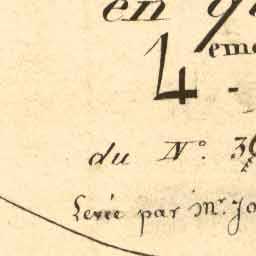 en
4 eme
du N°. 36
Levée par Mr. Jo